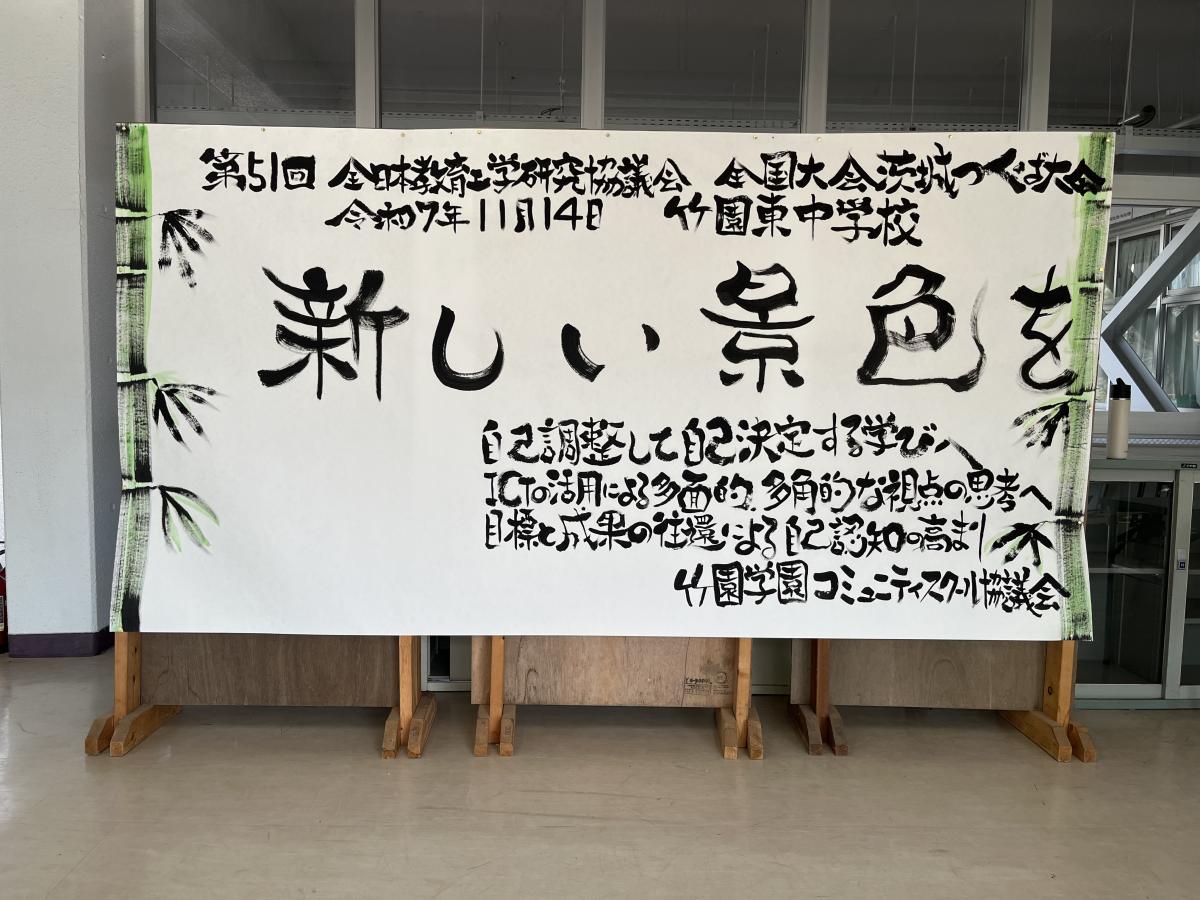 第51回 全日本教育工学研究協議会 全国大会茨城つくば大会
令和7年11月14日 竹園東中学校
新しい景色を
自己調整して自己決定する学びへ
ICTの活用による多面的、多角的な視点の思考へ
目標と成果の往還による自己認知の高まり
竹園学園コミュニティスクール協議会